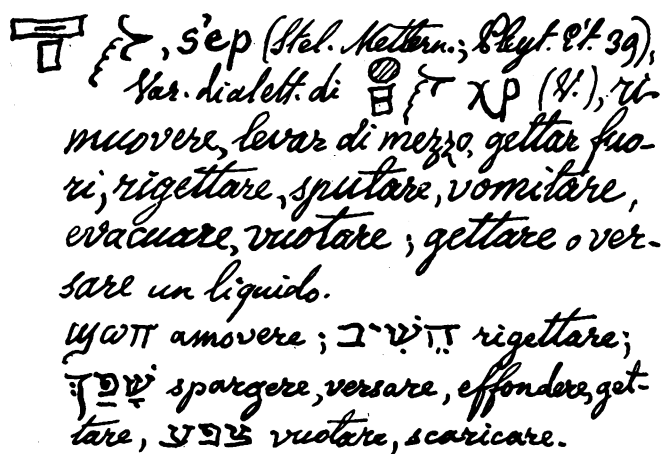 , s'ep (Stel. Mettern.; Pleyt. Pt. 39),
Var. dialett. di χp (V.), ri
muovere, levar di mezzo, gettar fuo-
ri, rigettare, sputare, vomitare,
evacuare, vuotare; gettare o ver-
sare un liquido.
amovere; הֵשִׁיב rigettare;
שָׁפַךְ spargere, versare, effondere, get-
tare, vuotare, scaricare.